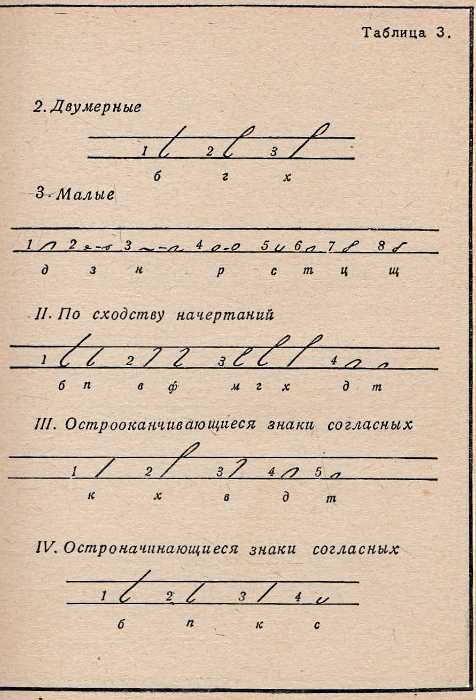 Таблица 3.
2. Двумерные
1 2 3
б г х
3. Малые
1 2 3 4 5 6 7 8
д з н р с т ц щ
II. По сходству начертаний
1 2 3 4
б п в ф м г х д т
III. Острооканчивающиеся знаки согласных
1 2 3 4 5
к х в д т
IV. Остроначинающиеся знаки согласных
1 2 3 4
б п к с